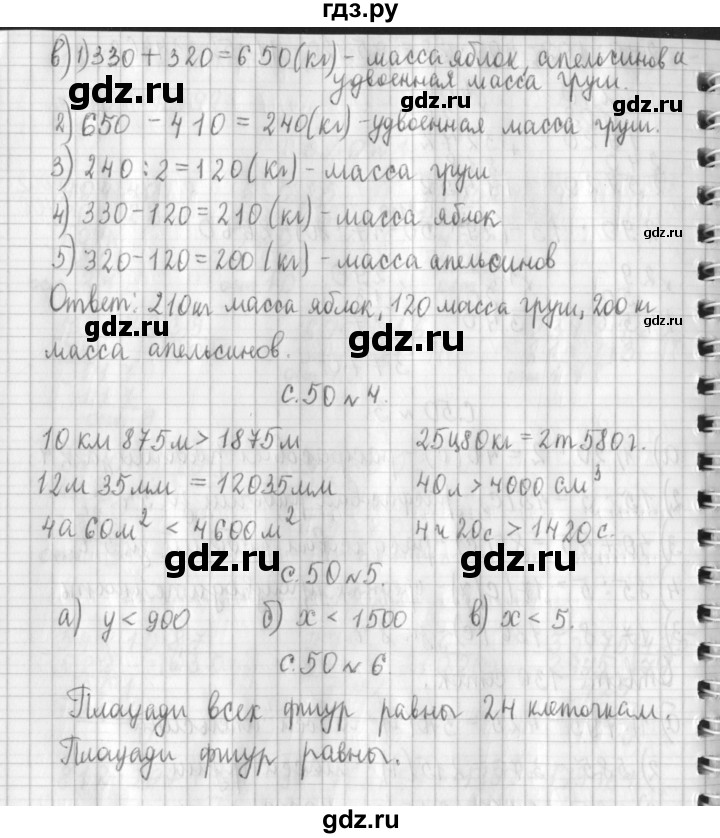 гдз.ру
в) 1) 330 + 320 = 650 (кг) - масса яблок, апельсинов и
удвоенная масса груш.
gdz.ru gdz.ru gdz.ru
2) 650 - 410 = 240 (кг) - удвоенная масса груш.
3) 240 : 2 = 120 (кг) - масса груш
4) 330 - 120 = 210 (кг) - масса яблок
gdz.ru gdz.ru
5) 320 - 120 = 200 (кг) - масса апельсинов
Ответ: 210 кг масса яблок, 120 масса груш, 200 кг
gdz.ru gdz.ru gdz.ru
масса апельсинов.
с. 50 № 4.
10 км 875 м > 1875 м 25ц80кг = 2т580г.
12м 35мм = 12035мм 40л > 4000 см³
4а 60м² < 4600м² 4ч 20с > 1420с.
gdz.ru gdz.ru gdz.ru
с. 50 № 5.
а) y < 900 б) x < 1500 в) x < 5.
с. 50 № 6
Площади всех фигур равны 24 клеточкам.
gdz.ru gdz.ru
Площади фигур равны.
gdz.ru gdz.ru